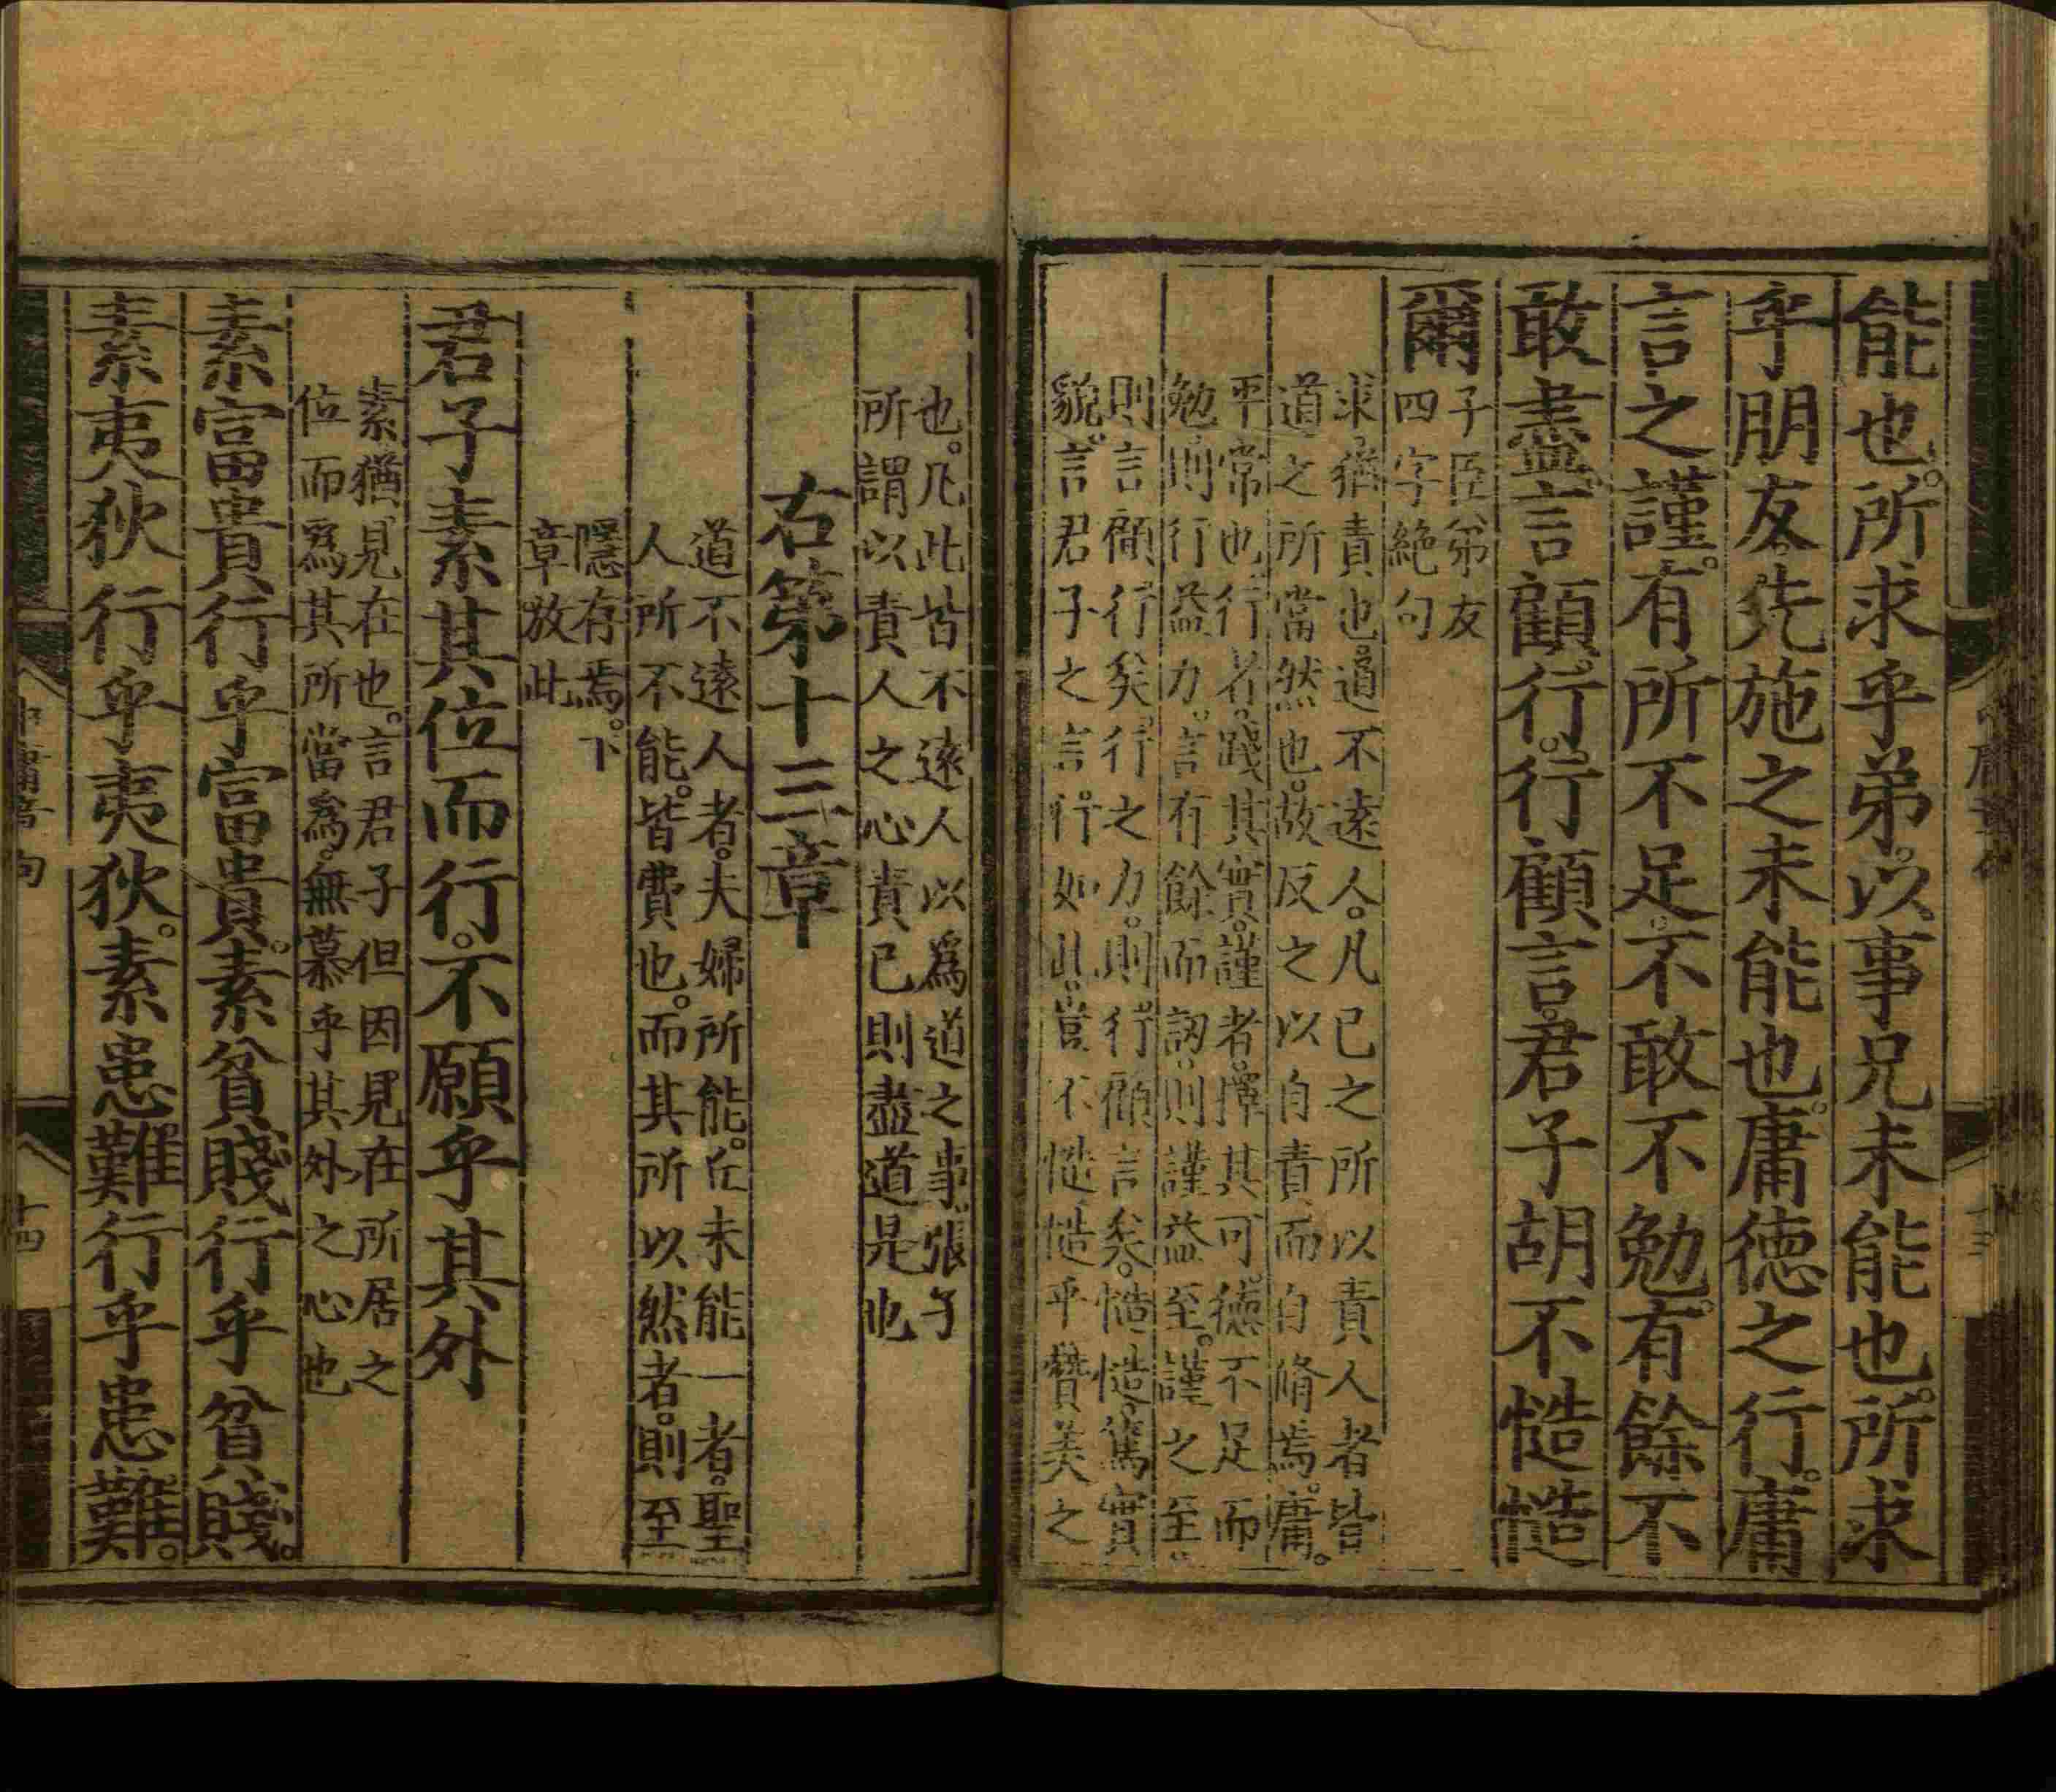 能也。所求乎弟。以事兄未能也。所求
乎朋友。先施之未能也。庸德之行。庸
言之謹。有所不足。不敢不勉。有餘不
敢盡。言顧行。行顧言。君子胡不慥慥
爾
子臣弟友
四字絶句
求猶責也道不遠人。凡已之所以責人者皆
道之所當然也。故反之以自責而自脩焉。庸。
平常也。行者。踐其實。謹者。擇其可。德不足而
勉。則行益力。言有餘而訒。則謹益至。謹之至。
則言顧行矣。行之力。則行顧言矣。慥慥。篤實
貌。言君子之言行如此。豈不慥慥乎贊美之
也。凡此皆不遠人以爲道之事。張子
所謂以責人之心責已則盡道是也
右第十三章
道不遠人者。夫婦所能。丘未能一者。聖
人所不能。皆費也。而其所以然者。則至
隱存焉。下
章放此
君子素其位而行。不願乎其外
素猶見在也。言君子但因見在所居之
位而爲其所當爲。無慕乎其外之心也
素富貴行乎富貴。素貧賤行乎貧賤。
素夷狄行乎夷狄。素患難行乎患難。
中庸章句
十四